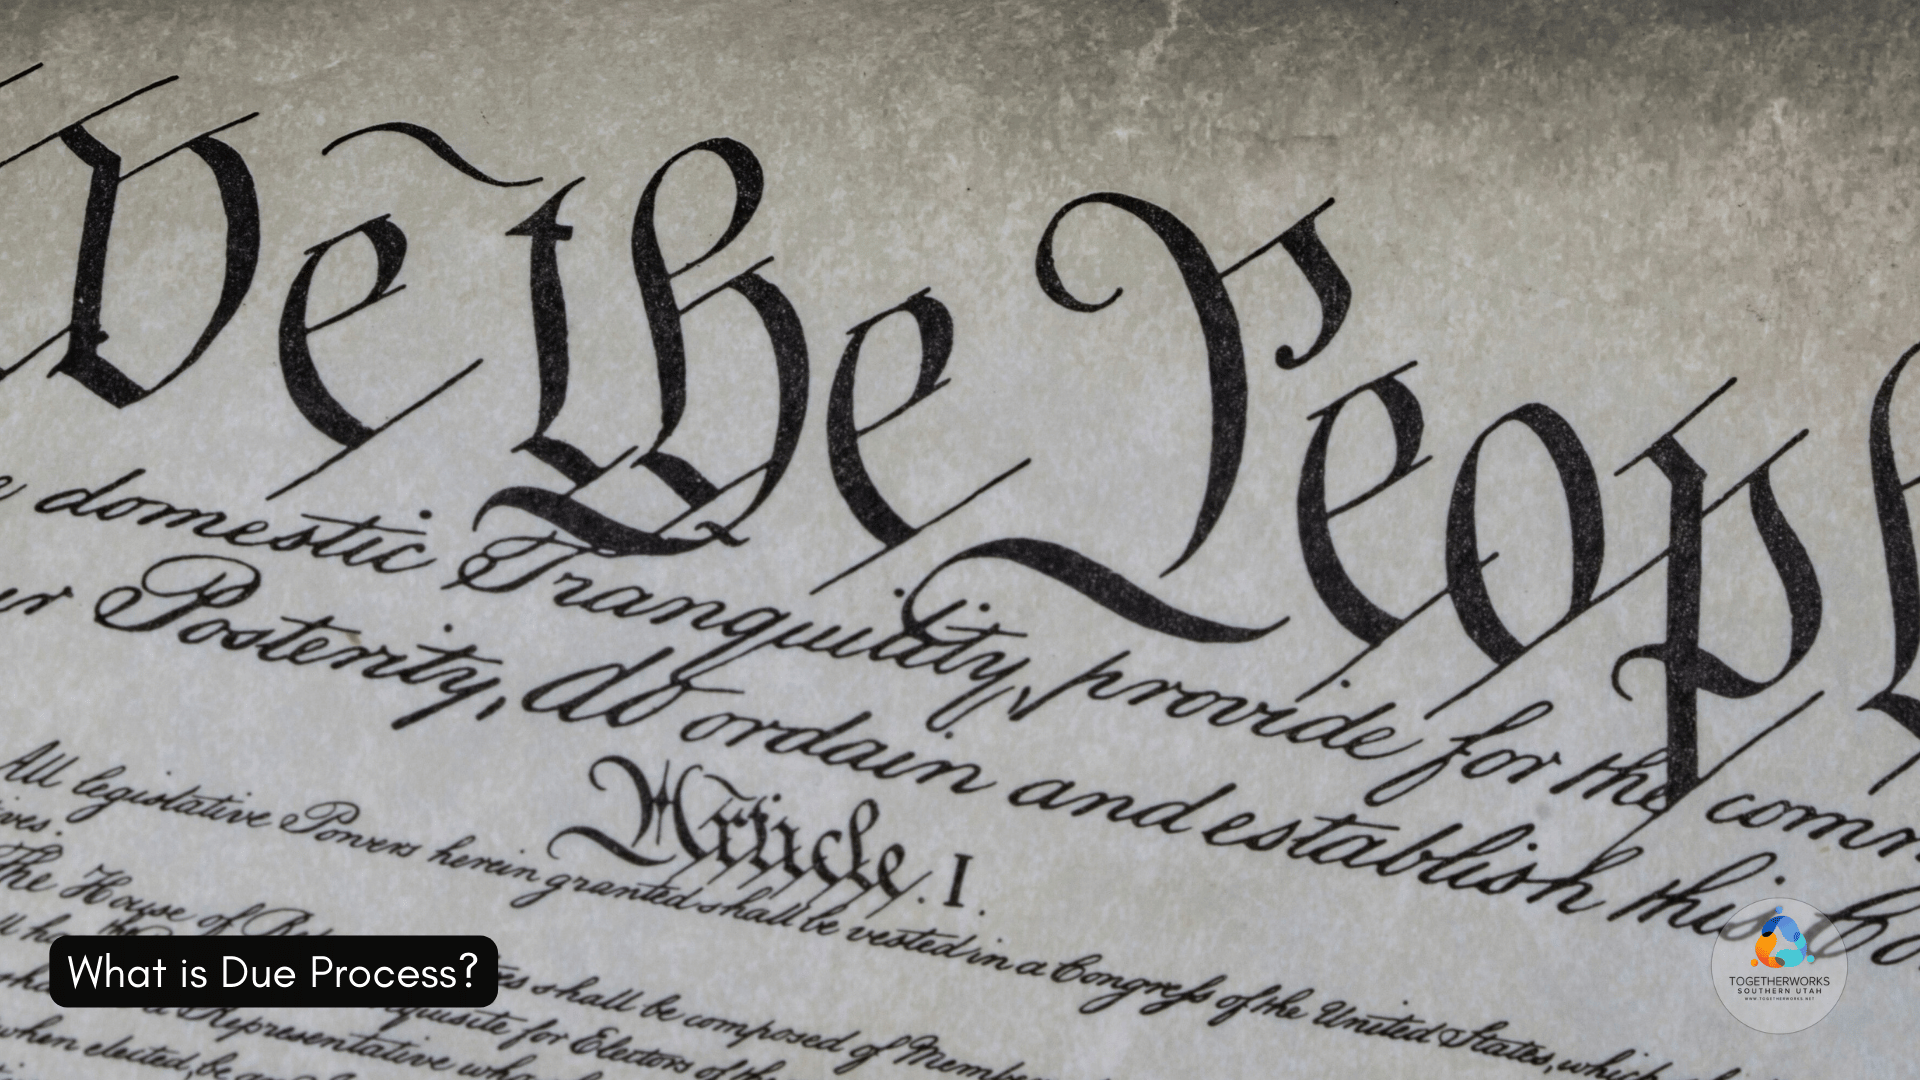 We the Peopl
domestic Tranquility, provide for the comm
Posterity, do ordain and establish this
Article. I.
All legislative Powers herein granted shall be vested in a Congress of the United States, which
The House of Re
shall be composed of Membe
quisite for Electors of the
Representative who
when elected, be an
What is Due Process?
TOGETHERWORKS
SOUTHERN UTAH
WWW.TOGETHERWORKS.NET